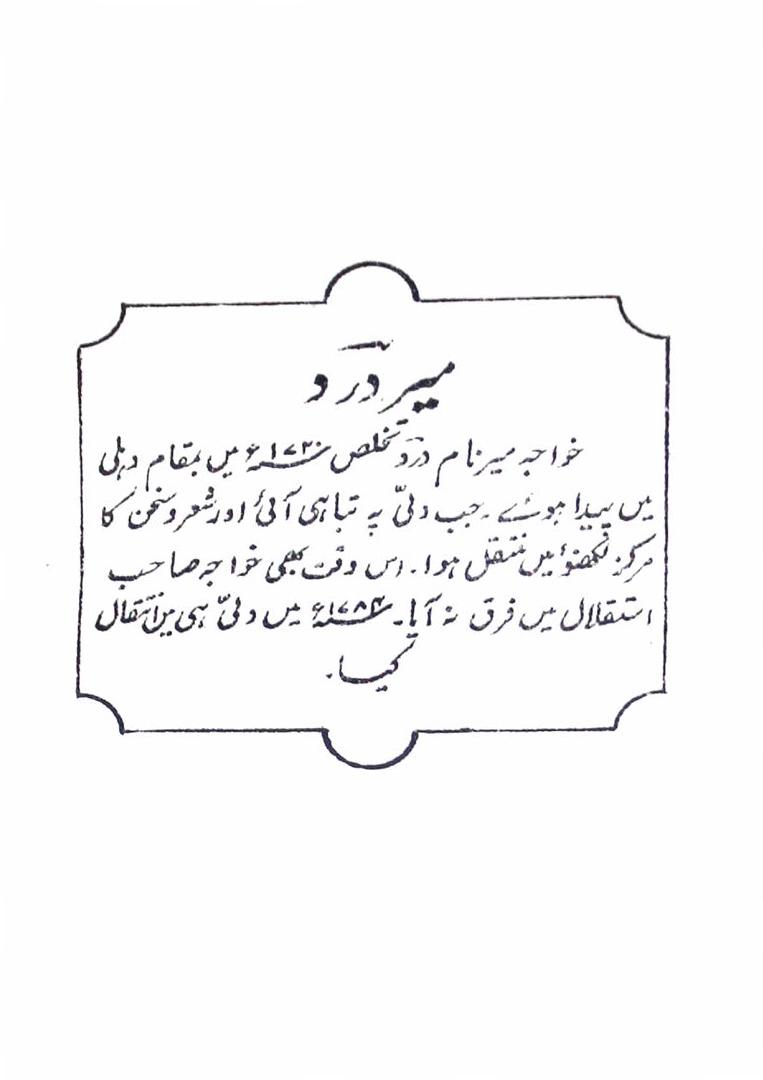 میر درد
خواجہ میر نام درد تخلص ۱۷۲۰ء میں بمقام دہلی
میں پیدا ہوئے۔ جب دلّی پہ تباہی آئی اور شعر و سخن کا
مرکز لکھنؤ میں منتقل ہوا۔ اس وقت بھی خواجہ صاحب
استقلال میں فرق نہ آیا۔ ۱۷۸۴ء میں دلّی ہی میں انتقال
کیا۔